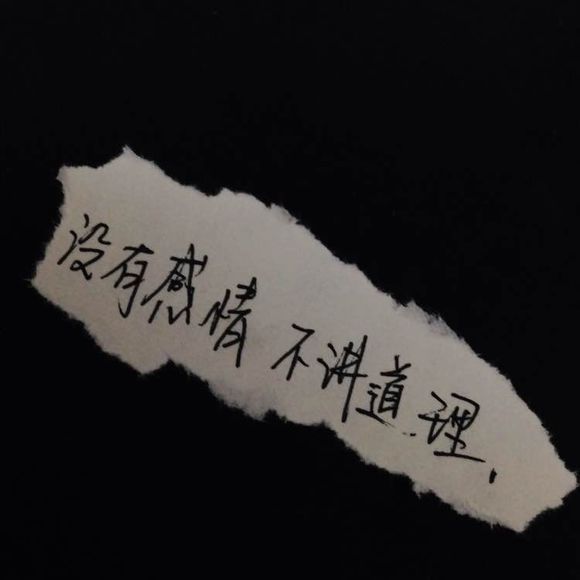 没有感情 不讲道理、